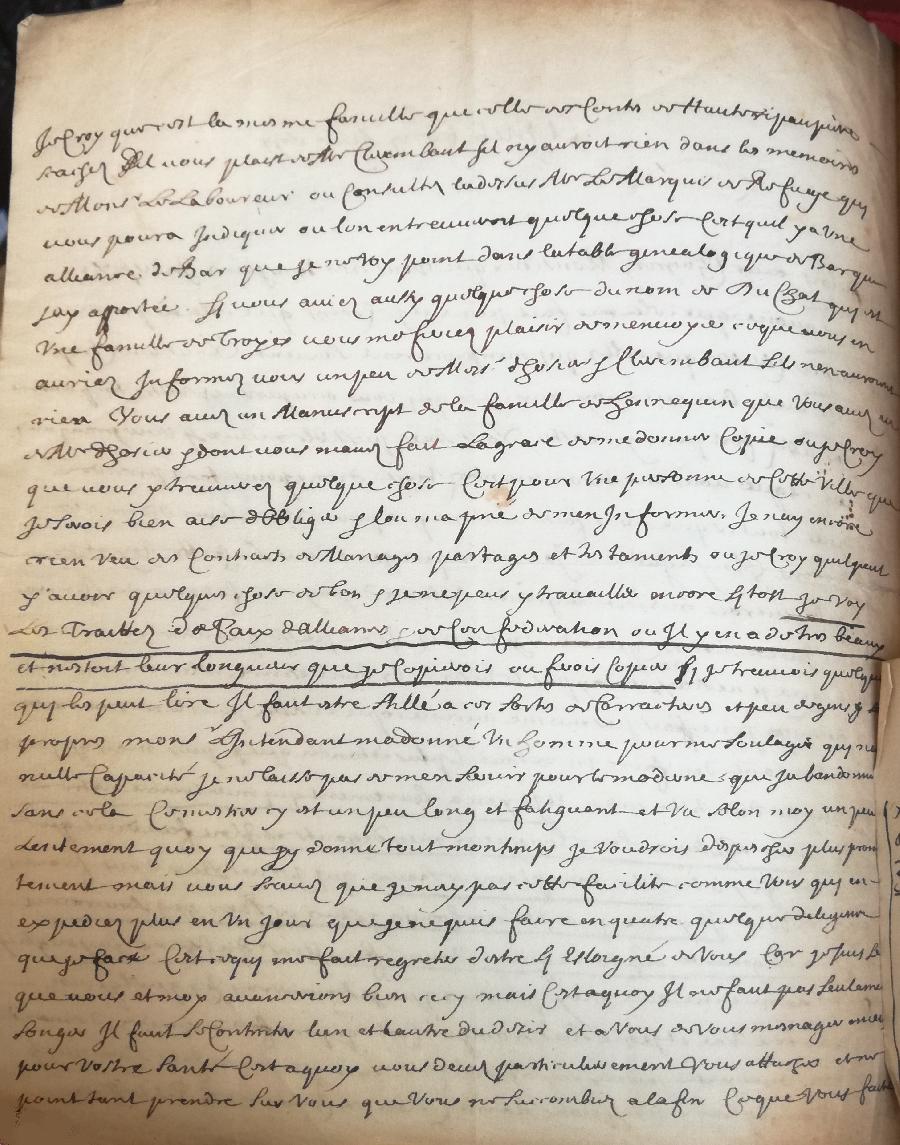 Je Croy que cest la mesme famille que celle des Contes de
scachez sil vous plaist de Mr Clerembaut sil ny auroit rien dans les memoires
de Mons.r Le Laboureur ou Consultez ladessus Mr Le Marquis de Refuge qui
vous poura Indiquer ou lon entreuveroit quelque chose Cest quil y a Une
alliance de Bar que je ne voy point dans latable genealogique de Bar que
jay aportée. Sy vous aviez aussy quelque chose du nom de Du Chat qui est
Une famille de Troyes vous me feriez plaisir de menvoyer ce que vous en
auriez Informez vous un peu de Mrs dhosier Clerembaut sils nen auroient
rien Vous avez un Manuscript de la famille de hennequin que Vous avez eu
de Mr dhosier dont vous mavez fait La grace de me donner Copie ou je Croy
que vous y treuverez quelque chose Cest pour Une personne de Cette Ville que
Je serois bien aise dobliger lon ma prié de men Informer. Je nay encore
rien veu des Contracts de Mariages partages et testaments ou je Croy quil peut
y avoir quelque chose de bon je ne peus y travailler encore sy tost je voy
Les Traittez de Paix dAlliances de Confederation ou Il y en a de tres beaux
et nestoit leur longueur que je Copierois ou ferois Copier Sy je treuvois quelqun
qui les peut lire Il faut estre stillé a ces sortes de Carracteres et peu de gens y
propres mons.r LIntendant ma donné Un homme pour me soulager qui na
nulle Capacité je ne laisse pas de men servir pour le moderne que jabandonne
sans cela Ce mestier cy est un peu long et fatiguant et Va selon moy un peu
Lentement quoy que jy donne tout mon temps je Voudrois depescher plus prom
tement mais vous scavez que je nay pas cette facilité comme Vous qui en
expediez plus en Un Jour que je ne puis faire en quatre quelque diligence
que je face Cest ce qui me fait regreter destre sy Esloigné de Vous Car je suis
que vous et moy avancerions bien cecy mais Cest a quoy Il ne faut pas seulement
songer Il faut se Contenter lun et lautre du desir et a Vous de Vous menager
pour Vostre santé Cest a quoy vous devez particulierement Vous attacher et ne
point tant prendre sur Vous que Vous ne succombiez a la fin Ce que Vous faites